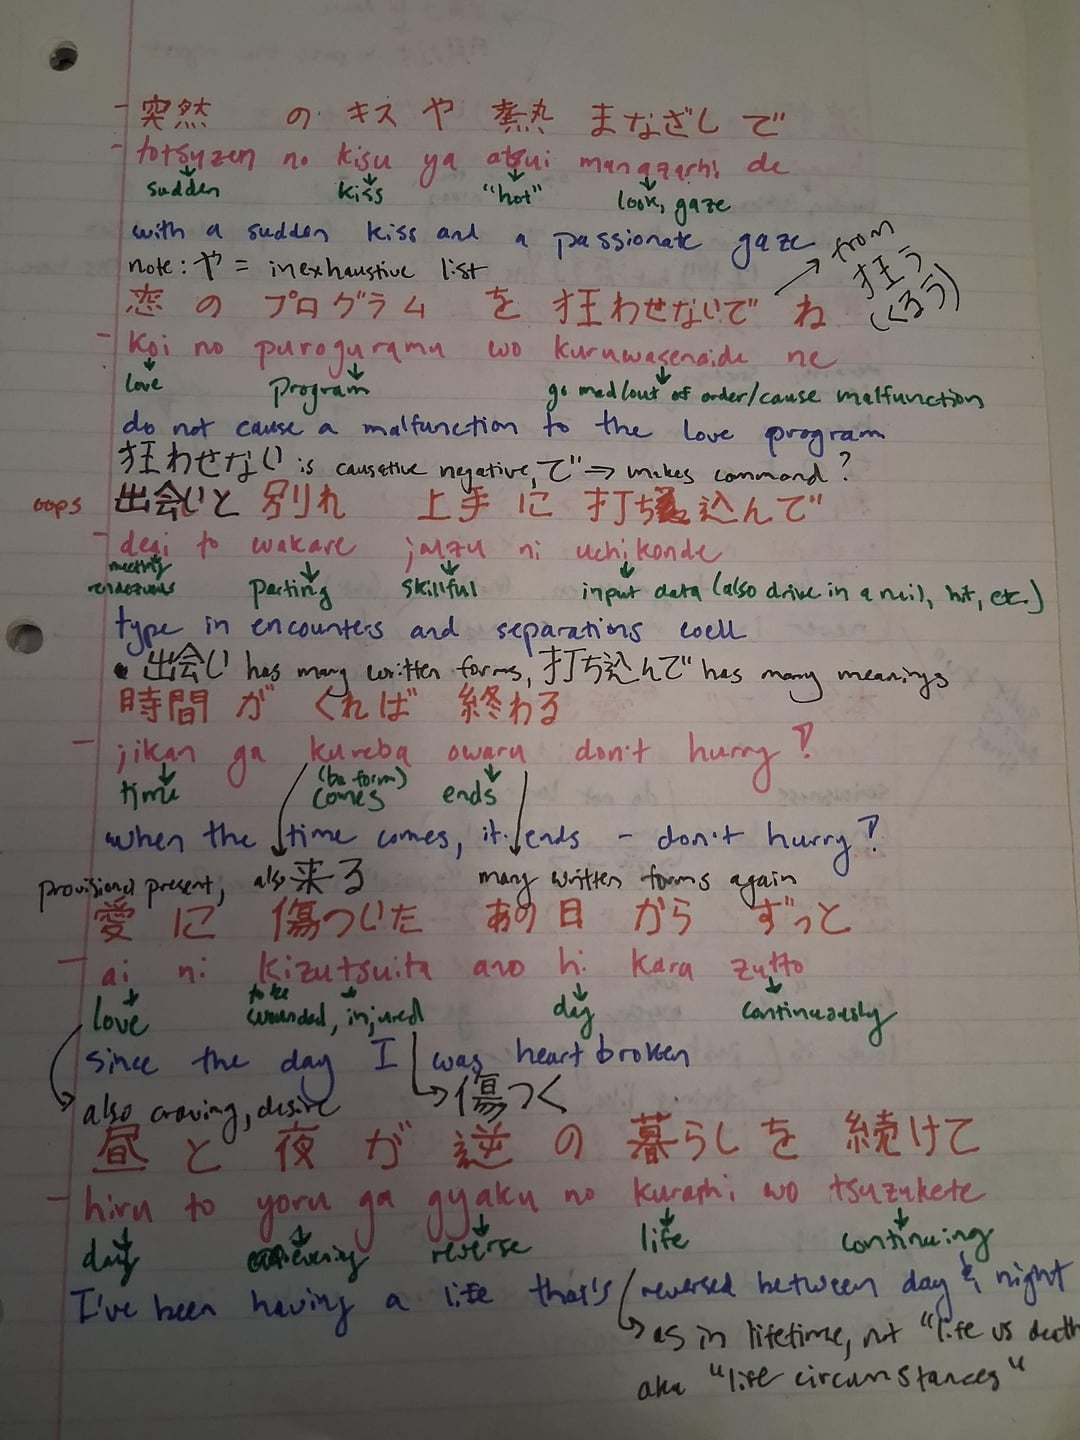 - 突然 の キス や 熱 まなざし で
- totsuzen no kisu ya atsui manazashi de
sudden kiss "hot" look, gaze
with a sudden kiss and a passionate gaze
note: や = inexhaustive list
from 狂う (くるう)
恋 の プログラム を 狂わせないで ね
- koi no puroguramu wo kuruwasenaide ne
love program go mad/out of order/cause malfunction
do not cause a malfunction to the love program
狂わせない is causative negative, で → makes command?
oops 出会いと 別れ 上手 に 打ち込んで
- deai to wakare jouzu ni uchikonde
meeting rendezvous parting skillful input data (also drive in a nail, hit, etc.)
type in encounters and separations well
• 出会い has many written forms, 打ち込んで has many meanings
時間 が くれば 終わる
- jikan ga kureba owaru don't hurry?
time (ba form) comes ends
when the time comes, it ends - don't hurry?
provisional present, also 来る many written forms again
愛 に 傷ついた あの日 から ずっと
- ai ni kizutsuita ano hi kara zutto
love to be wounded, injured day continuously
since the day I was heart broken
also craving, desire 傷つく
昼 と 夜 が 逆 の 暮らし を 続けて
- hiru to yoru ga gyaku no kurashi wo tsuzukete
day evening reverse life continuing
I've been having a life that's reversed between day & night
as in lifetime, not "life vs death
aka "life circumstances"